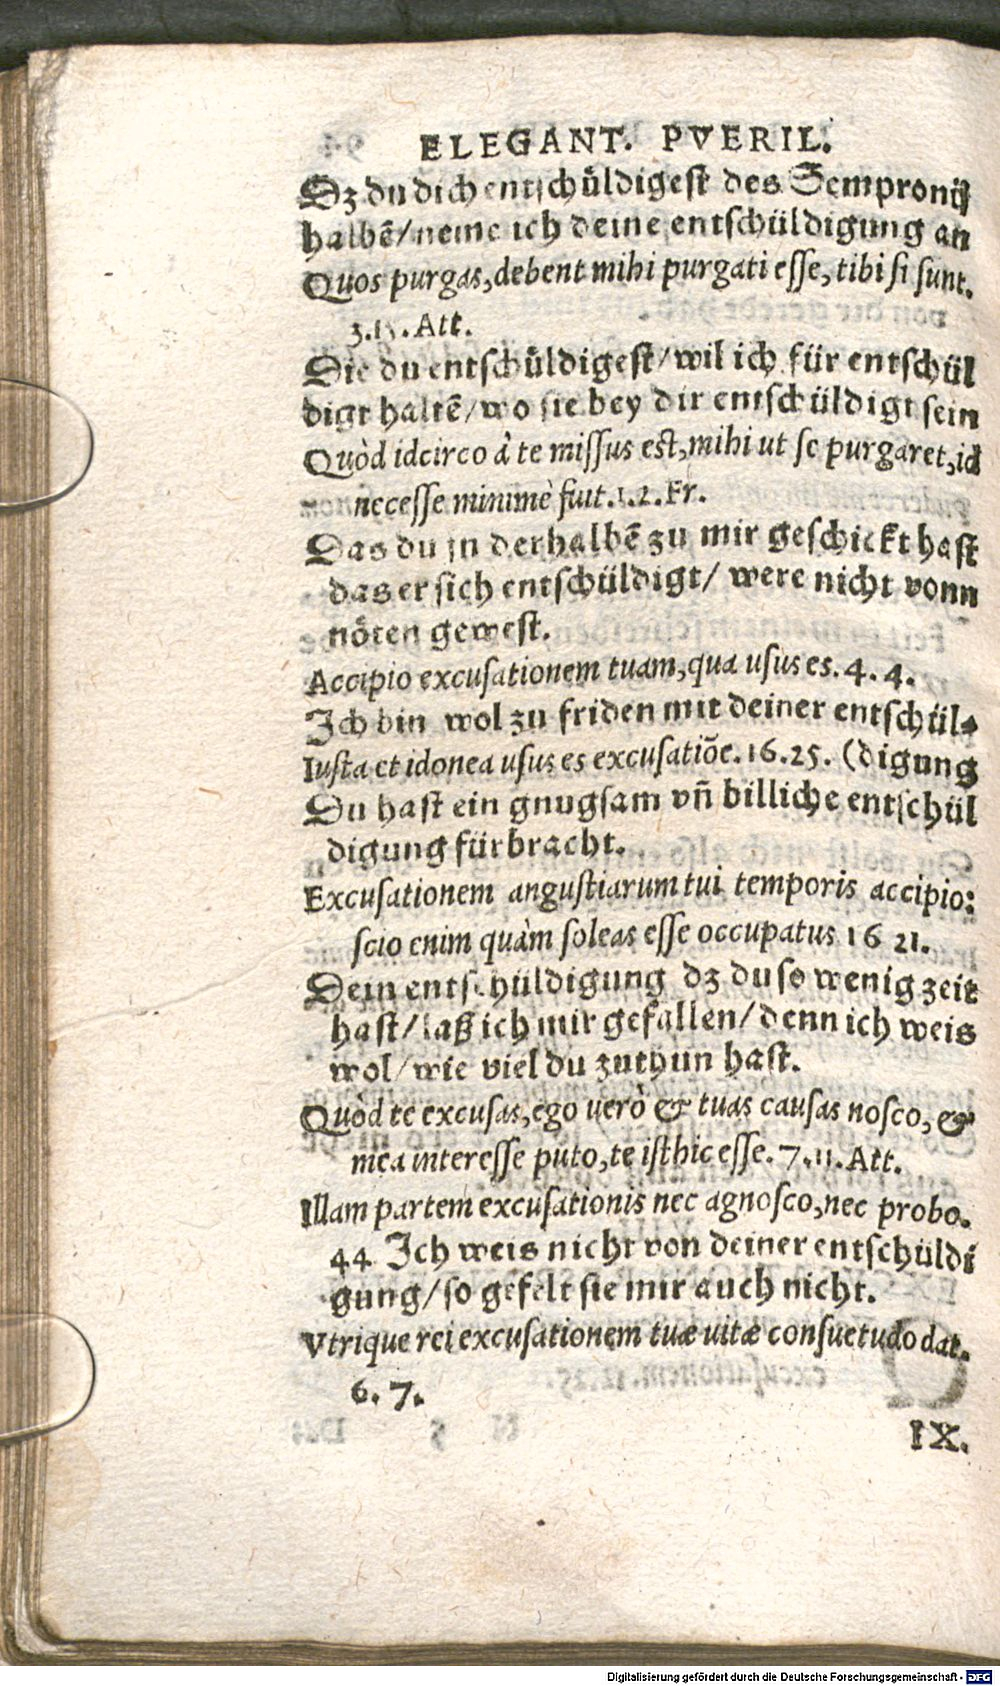 ELEGANT. PVERIL.
Dz du dich entschüldigest des Sempronij
halbē/neme ich deine entschüldigung an
Quos purgas, debent mihi purgati esse, tibi si sunt.
3.15. Att.
Die du entschüldigest/wil ich für entschül
digt haltē/wo sie bey dir entschüldigt sein
Quòd idcirco à te missus est, mihi ut se purgaret, id
necesse minimè fuit. 1.2. Fr.
Das du jn derhalbē zu mir geschickt hast
das er sich entschüldigt/ were nicht vonn
nöten gewest.
Accipio excusationem tuam, qua usus es. 4. 4.
Ich bin wol zu friden mit deiner entschül-
Iusta et idonea usus es excusatiōe. 16.25. (digung
Du hast ein gnugsam vñ billiche entschül
digung fürbracht.
Excusationem angustiarum tui temporis accipio:
scio enim quàm soleas esse occupatus 16 21.
Dein entschüldigung dz du so wenig zeit
hast/laß ich mir gefallen/denn ich weis
wol/wie viel du zuthun hast.
Quòd te excusas, ego verò & tuas causas nosco, &
mea interesse puto, te isthic esse. 7.11. Att.
Illam partem excusationis nec agnosco, nec probo.
44. Ich weis nicht von deiner entschüldi
gung/so gefelt sie mir auch nicht.
Vtrique rei excusationem tuæ uitæ consuetudo dat.
6. 7.
IX.
Digitalisierung gefördert durch die Deutsche Forschungsgemeinschaft - DFG